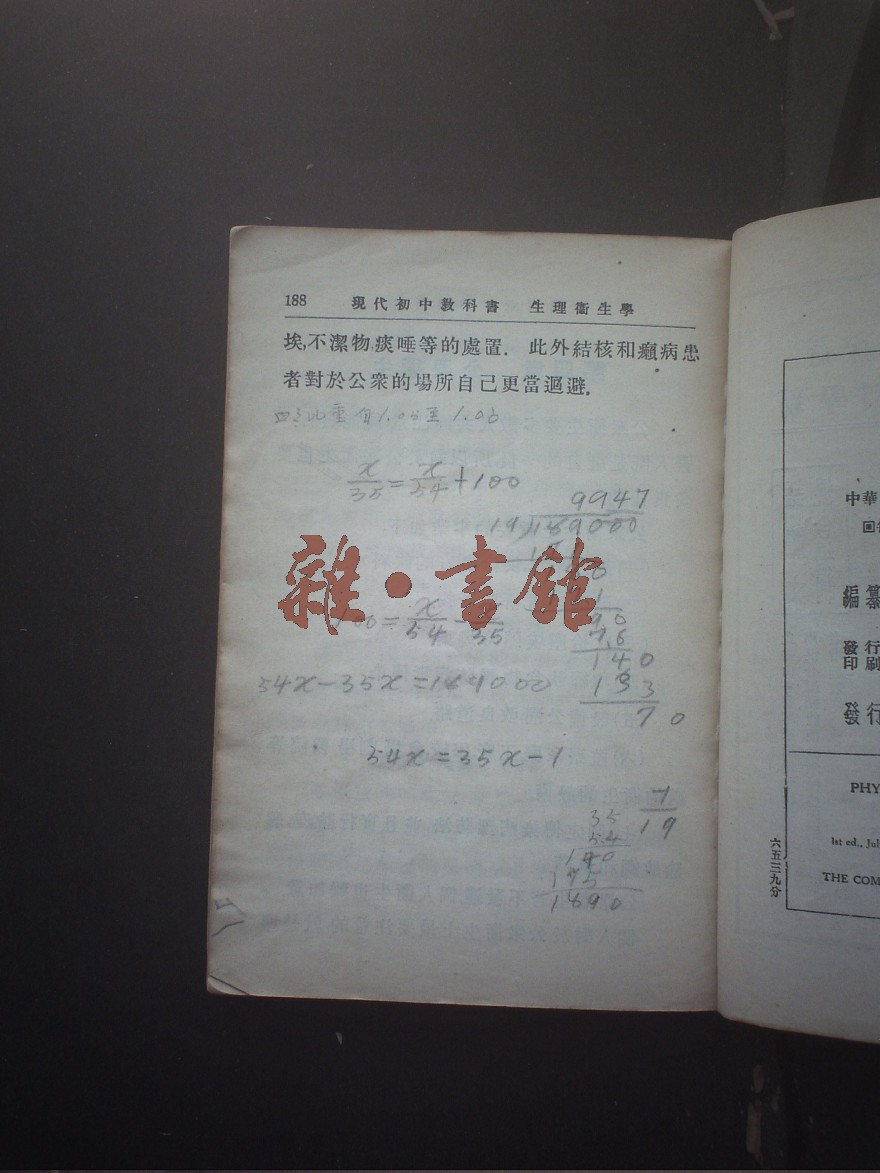 188 現代初中教科書 生理衞生學
埃,不潔物,痰唾等的處置. 此外結核和癩病患
者對於公衆的場所自己更當迴避.
比重自1.05至1.06
x/35=x/54+100
9947
19)189000
雜·書館
90
76
140
133
70
54x-35x=189000
54x=35x-1
7/19
35
54
140
175
1890
中華
編纂
發行
印刷
發行
PHY
1st ed., Jul
THE COM
六五三九分